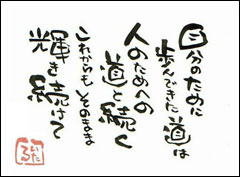 自分のために
歩んできた道は
人のためへの
道と続く
これからもそのまま
輝き続けて